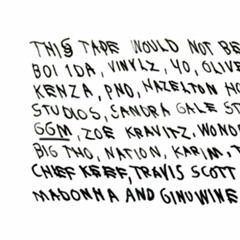 THIS TAPE WOULD NOT BE
BOI 1DA, VINYLZ, 40, OLIVE
KENZA, PND, HAZELTON HO
STUDIOS, SANDRA GALE ST
GGM, ZOE KRAVITZ, WOND
BIG THO, NATION, KARIM, T
CHIEF KEEF, TRAVIS SCOTT
MADONNA AND GINUWINE